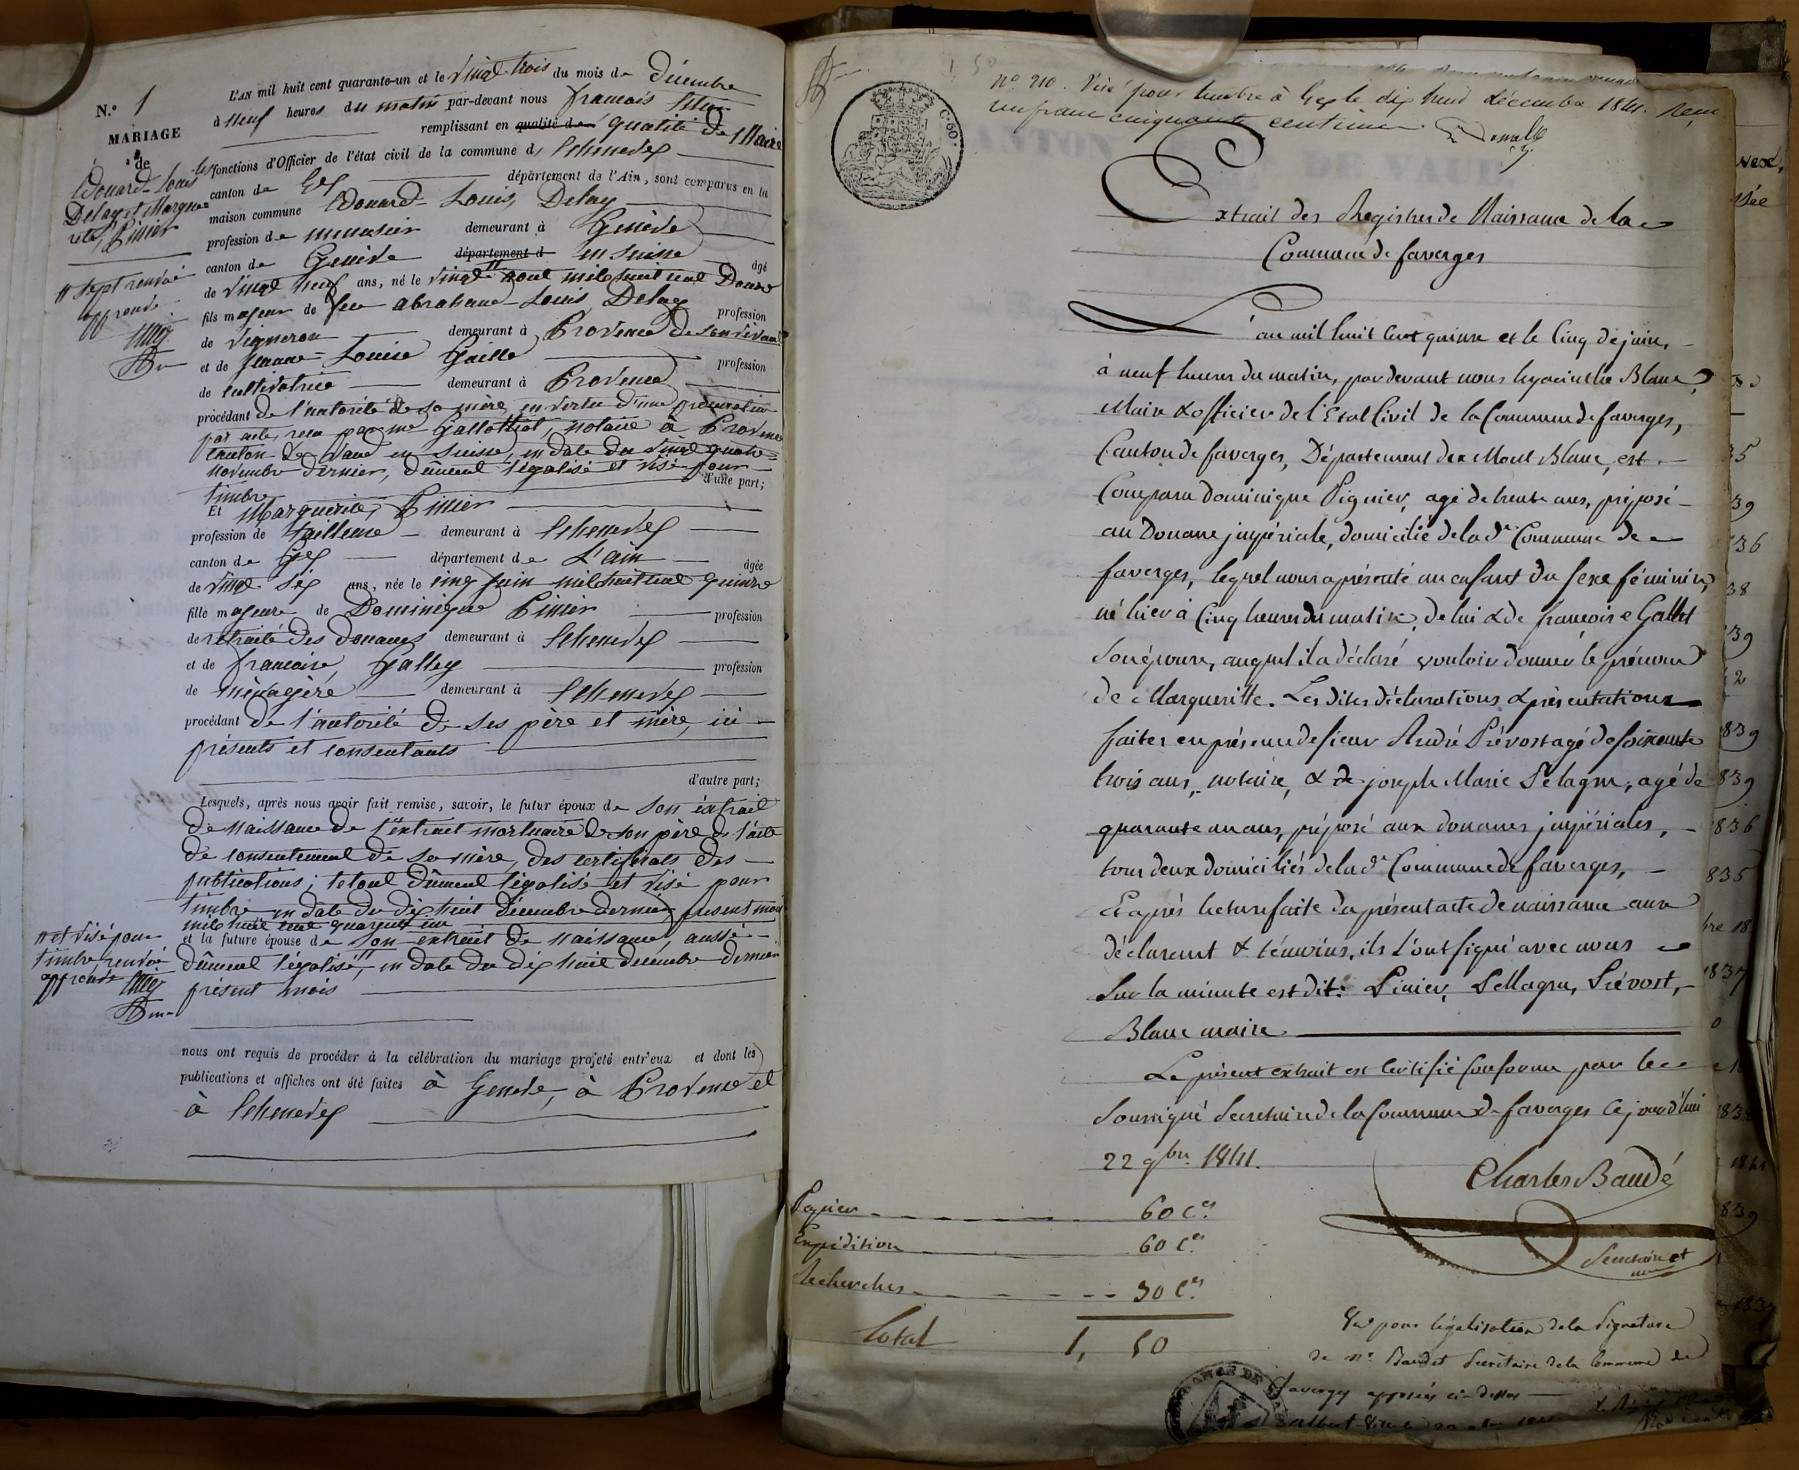 N.° 1
MARIAGE
de
Edouard-Louis
Delay et Margue=
rite Pinier
L'AN mil huit cent quarante-un et le vingt trois du mois de décembre
à neuf heures du matin par-devant nous françois
remplissant en qualité de qualité de Maire
les fonctions d'Officier de l'état civil de la commune d
canton de Gex département de l'Ain, sont comparus en la
maison commune Edouard-Louis Delay
profession de menuisier demeurant à Genève
canton de Genève département d en suisse âgé
de vingt neuf ans, né le vingt août mil huit cent Douze
fils majeur de feu abraham-Louis Delay profession
de vigneron demeurant à Provence de son vivant
et de Jeanne-Louise Gaille profession
de cultivatrice demeurant à Provence
procédant de l'autorité de sa mère, en vertu d'une procuration
par acte, reçu par me notaire à Provence
canton de Vaud en suisse, en date du vingt quatre
novembre dernier, dûment légalisé et visé pour
timbre d'une part;
Et Marguerite Pinier
profession de tailleuse demeurant à
canton de Gex département de L'ain âgée
de vingt six ans, née le cinq juin mil huit cent quinze
fille majeure de Dominique Pinier profession
de retraité des douanes demeurant à
et de françoise Galley profession
de ménagère demeurant à
procédant de l'autorité de ses père et mère, ici
présents et consentants
d'autre part;
Lesquels, après nous avoir fait remise, savoir, le futur époux de son extrait
de naissance de l'extrait mortuaire de son père de l'acte
de consentement de sa mère, des certificats des
publications; le tout dûment légalisé et visé pour
timbre en date du dix huit décembre dernier présent mois
mil huit cent quarante un
et la future épouse de son extrait de naissance, aussi
dûment légalisé, en date du dix huit décembre dernier
présent mois
nous ont requis de procéder à la célébration du mariage projeté entr'eux et dont les
publications et affiches ont été faites à Genève, à Provence et
à
sept renvoi
approuvé
et visé pour
timbre renvoi
approuvé
N° 210. Visé pour timbre à Gex le dix huit décembre 1841. Reçu
un franc cinquante centimes
C. 60.
CANTON DE VAUD.
Extrait des Registres de Naissance de la
Commune de faverges
L'an mil huit cent quinze et le Cinq de juin,
à neuf heures du matin, par devant nous hyacinthe Blanc,
Maire & officier de l'Etat Civil de la Commune de faverges,
Canton de faverges, Département du Mont Blanc, est
Comparu Dominique Pignier, agé de trente ans, préposé
au Douane impériale, domicilié de la de Commune de
faverges, lequel nous a présenté un enfant du sexe féminin,
né hier à Cinq heures du matin, de lui & de françoise Gallet
son épouse, auquel il a déclaré vouloir donner le prénom
de Marguerite. Les dites déclarations & présentations
faites en présence de sieur André Prévost agé de soixante
trois ans, notaire, & de joseph Marie Pelagru, agé de
quarante un ans, préposé aux douanes impériales,
tous deux domiciliés de la de Commune de faverges,
Et après lecture faite du présent acte de naissance aux
déclarant & témoins, ils l'ont signé avec nous
Sur la minute est dit: Pinier, Prévost,
Blanc maire
Le présent extrait est certifié conforme par le
Soussigné Secrétaire de la Commune de faverges ce jourd'hui
22 9bre 1841.
Charles Baudé
Secrétaire
Papier 60 Ces
Expédition 60 Ces
Recherches 30 Ces
Total 1, 50
Vu pour légalisation de la signature
de Mr Baudet Secrétaire de la Commune de
faverges apposée ci-dessus